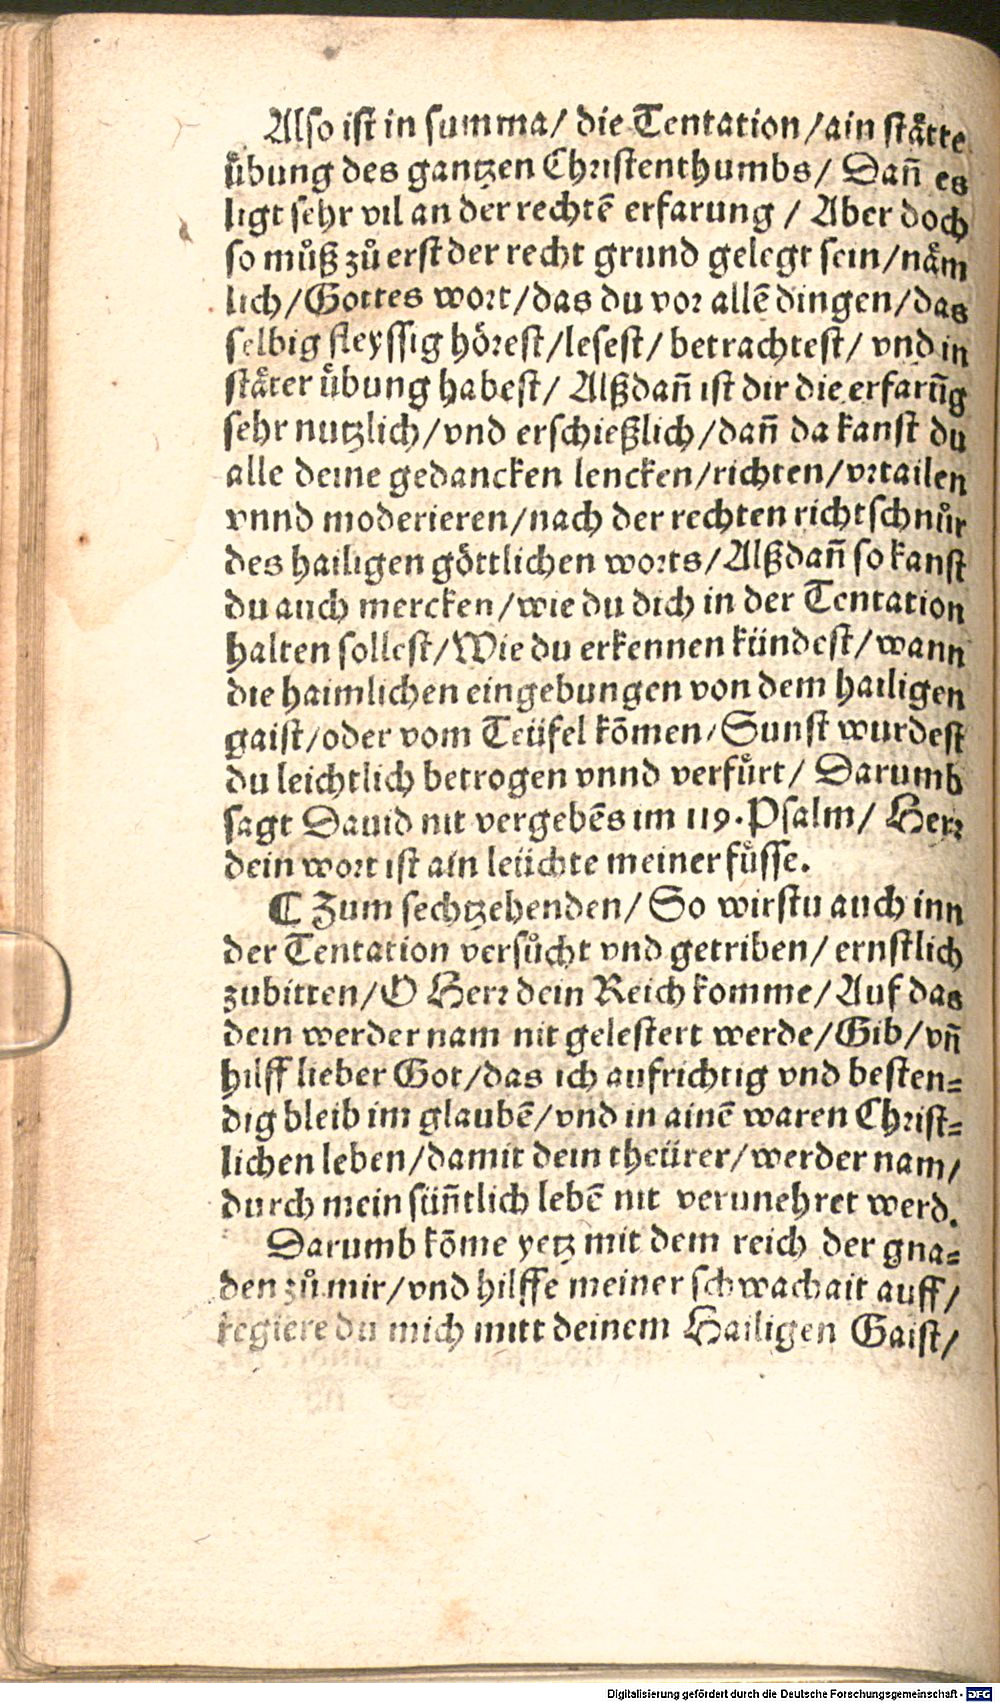 Also ist in summa/ die Tentation/ainståtte
übung des gantzen Christenthumbs/ Dañ es
ligt sehr vil an der rechtē erfarung / Aber doch
so můß zů erst der recht grund gelegt sein/näm
lich/Gottes wort/das du vor allē dingen/das
selbig fleyssig hörest/lesest/ betrachtest/ vnd in
stäter übung habest/ Alßdañ ist dir die erfarūg
sehr nutzlich/vnd erschießlich/dañ da kanst du
alle deine gedancken lencken/richten/vrtailen
vnnd moderieren/nach der rechten richtschnůr
des hailigen göttlichen worts/Alßdañ so kanst
du auch mercken/wie du dich in der Tentation
halten sollest/Wie du erkennen kündest/wann
die haimlichen eingebungen von dem hailigen
gaist/oder vom Teüfel kōmen/Sunst wurdest
du leichtlich betrogen vnnd verfůrt/ Darumb
sagt Dauid nit vergebēs im 119.Psalm/ Herr
dein wort ist ain leüchte meiner fůsse.
¶ Zum sechtzehenden/ So wirstu auch inn
der Tentation versůcht vnd getriben/ ernstlich
zubitten/O Herr dein Reich komme/Auf das
dein werder nam nit gelestert werde/Gib/vñ
hilff lieber Got/das ich aufrichtig vnd besten=
dig bleib im glaubē/vnd in ainē waren Christ=
lichen leben/damit dein theürer/werder nam/
durch mein süñtlich lebē nit verunehret werd.
Darumb kōme yetz mit dem reich der gna=
den zů mir/vnd hilffe meiner schwachait auff/
regiere du mich mitt deinem Hailigen Gaist/
Digitalisierung gefördert durch die Deutsche Forschungsgemeinschaft - DFG